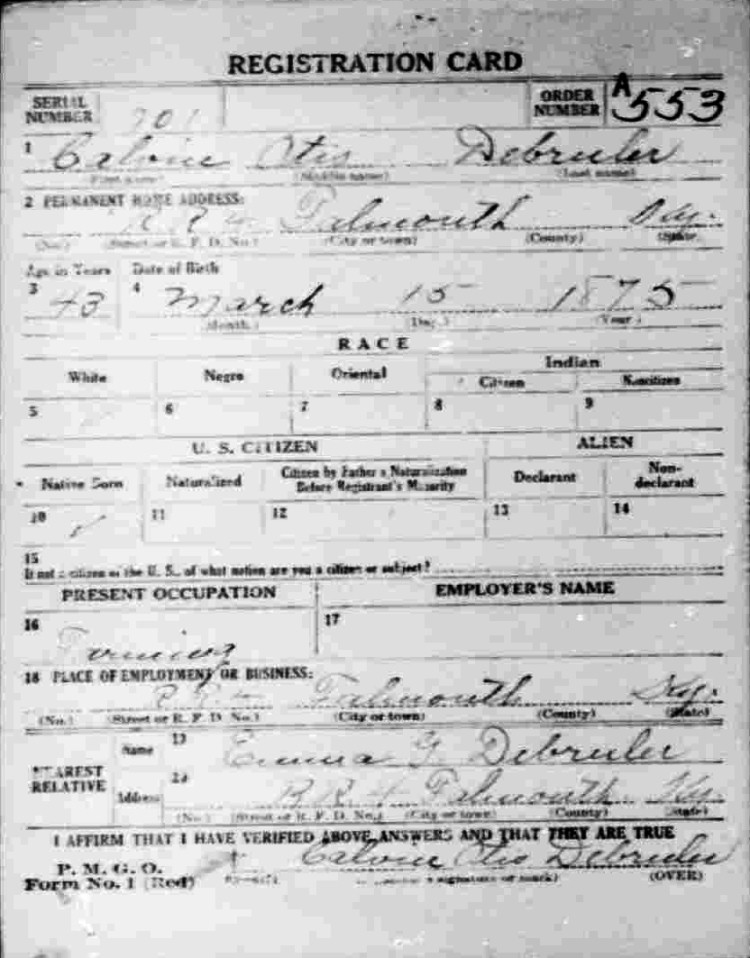 REGISTRATION CARD
SERIAL NUMBER 701 ORDER NUMBER A553
1 Calvin Otis Debruler
(First name) (Middle name) (Last name)
2 PERMANENT HOME ADDRESS:
R R 4 Falmouth Ky.
(No.) (Street or R. F. D. No.) (City or town) (County) (State)
Age in Years Date of Birth
3 43 4 March 15 1875
(Month.) (Day.) (Year.)
RACE
White Negro Oriental Indian
Citizen Noncitizen
5 6 7 8 9
U. S. CITIZEN ALIEN
Native Born Naturalized Citizen by Father's Naturalization Before Registrant's Majority Declarant Non-declarant
10 ✓ 11 12 13 14
15
If not a citizen of the U. S., of what nation are you a citizen or subject?
PRESENT OCCUPATION EMPLOYER'S NAME
16 Farming 17
18 PLACE OF EMPLOYMENT OR BUSINESS:
R R 4 Falmouth Ky.
(No.) (Street or R. F. D. No.) (City or town) (County) (State)
NEAREST RELATIVE
Name 19 Emma G Debruler
Address 20 R R 4 Falmouth Ky.
(No.) (Street or R. F. D. No.) (City or town) (County) (State)
I AFFIRM THAT I HAVE VERIFIED ABOVE ANSWERS AND THAT THEY ARE TRUE
P. M. G. O.
Form No. 1 (Red) Calvin Otis Debruler
signature or mark) (OVER)